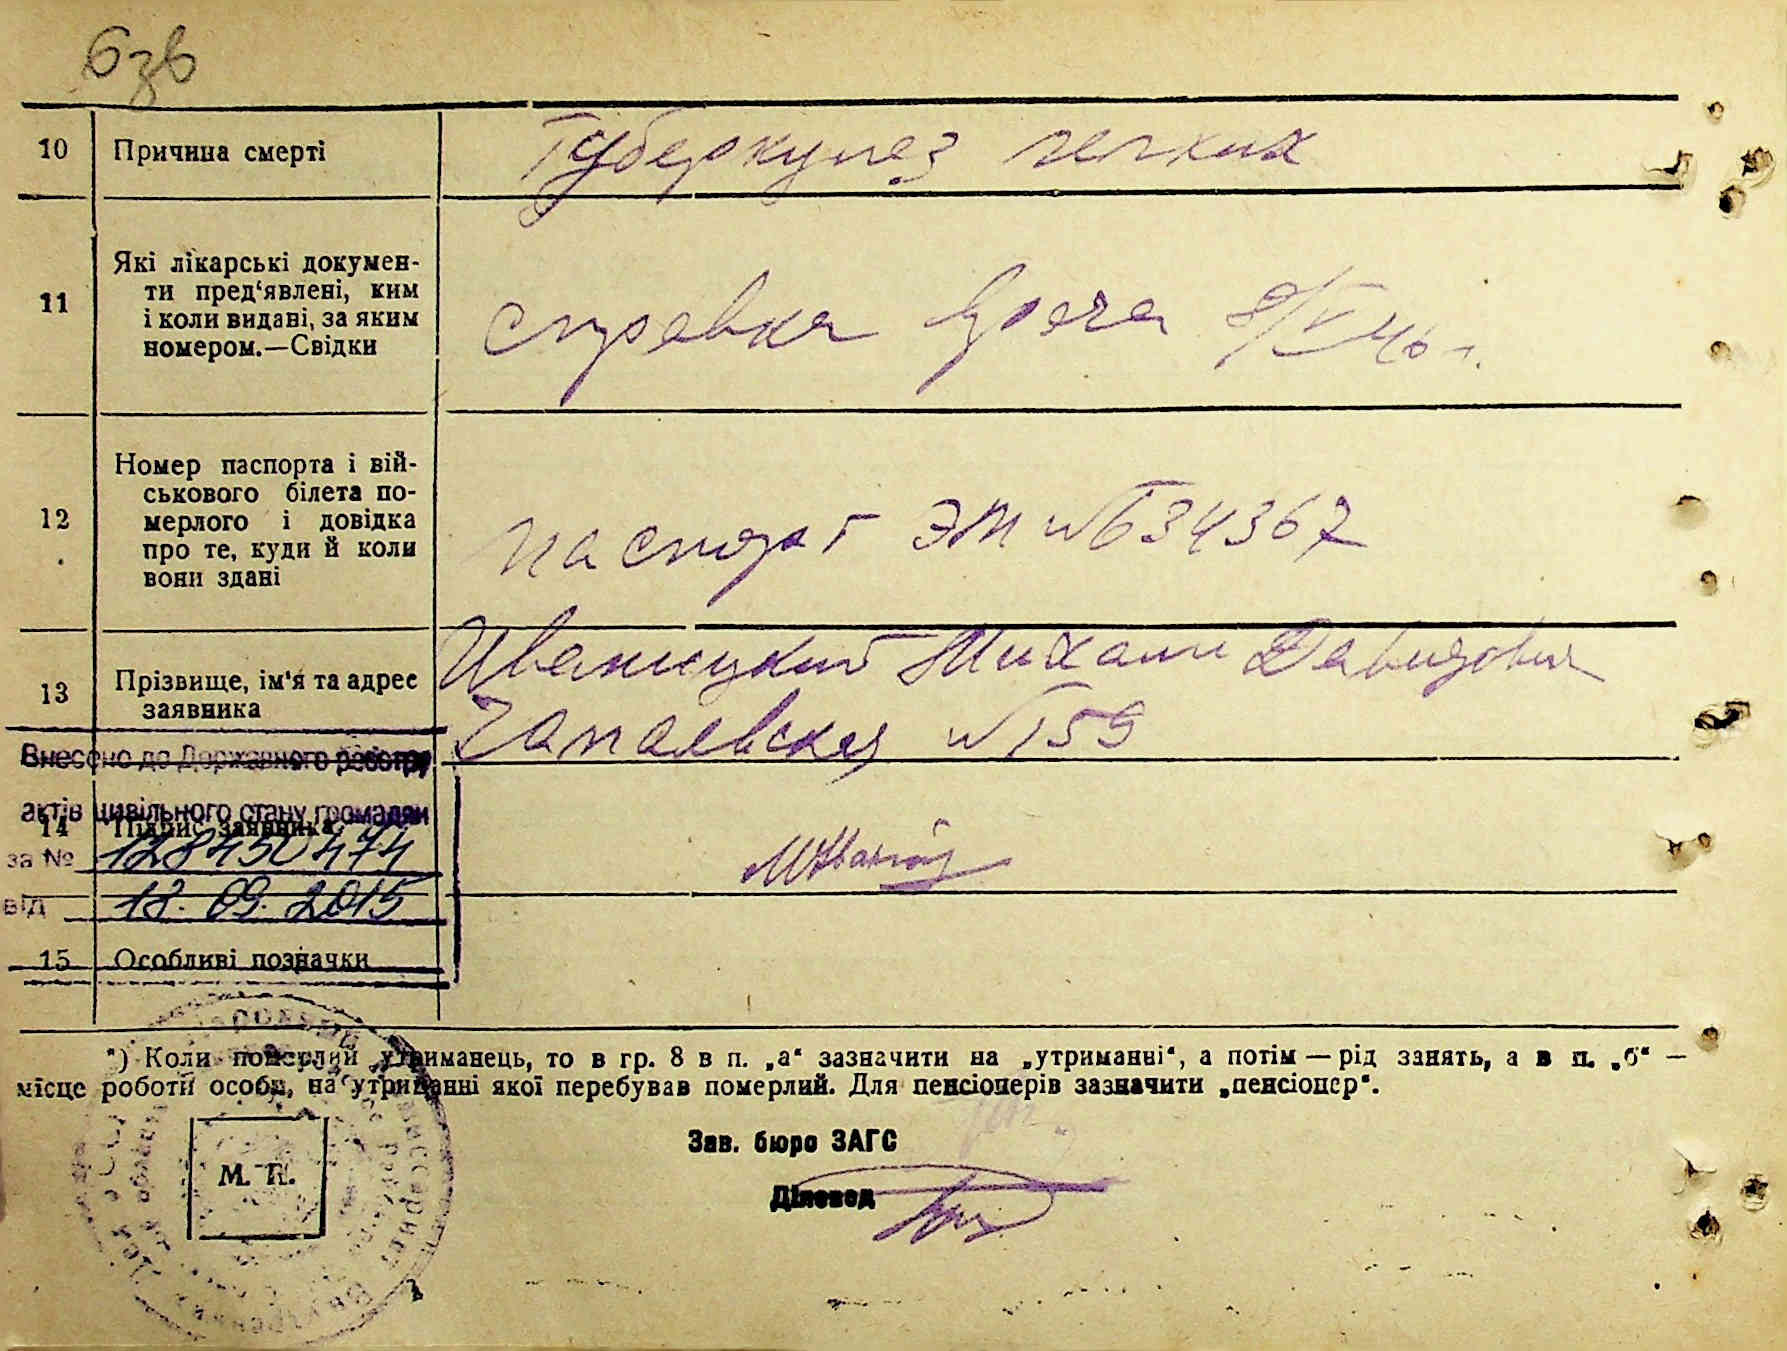 6зв
10 Причина смерті Туберкулез легких
11 Які лікарські докумен-
ти пред'явлені, ким
і коли видані, за яким
номером.—Свідки
справка врача 8/V 46 г.
12 Номер паспорта і вій-
ськового білета по-
мерлого і довідка
про те, куди й коли
вони здані
паспорт ЭМ № 634367
13 Прізвище, ім'я та адрес
заявника
Иваницкий Михаил Давидович
Чапаевская № 159
Внесено до Державного реєстру
актів цивільного стану громадян
14 Підпис заявника
за № 128450474
від 18.09.2015
15 Особливі позначки
*) Коли померлий утриманець, то в гр. 8 в п. „а“ зазначити на „утриманні“, а потім — рід занять, а в п. „б“ —
місце роботи особи, на утриманні якої перебував померлий. Для пенсіонерів зазначити „пенсіонер“.
Зав. бюро ЗАГС
М. П.
Діловод